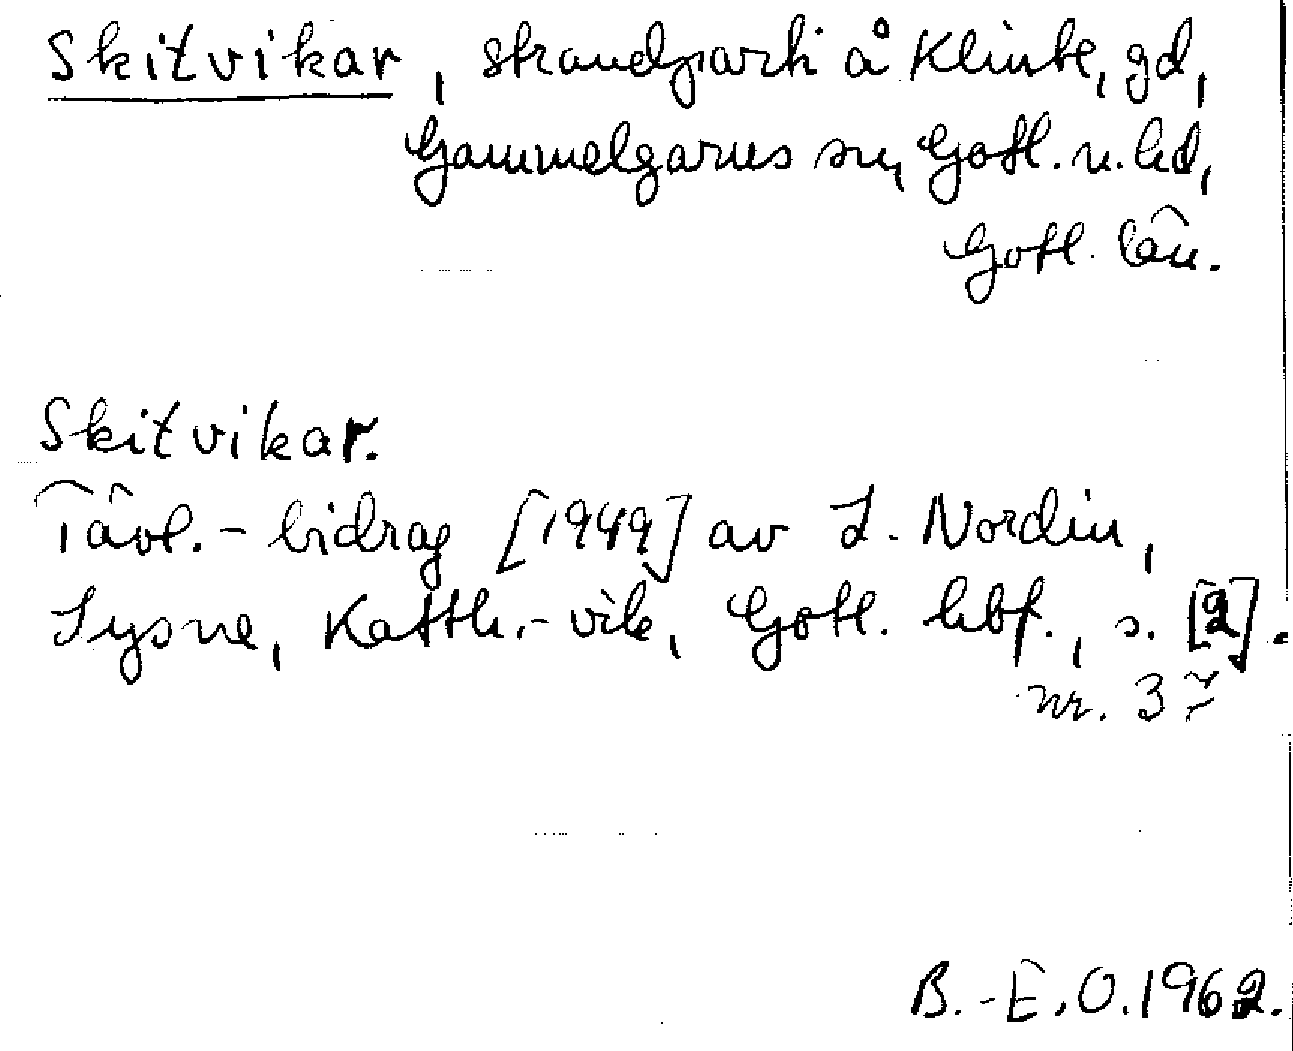 Skitvikar, strandparti å Klinte, gd,
Gammelgarns sn, Gotl. n. hd,
Gotl. län.
Skitvikar.
Tävl.-bidrag [1949] av I. Nordin,
Sysne, Katth.-vik, Gotl. hbf., s. [2].
nr. 37
B.-E.O.1962.